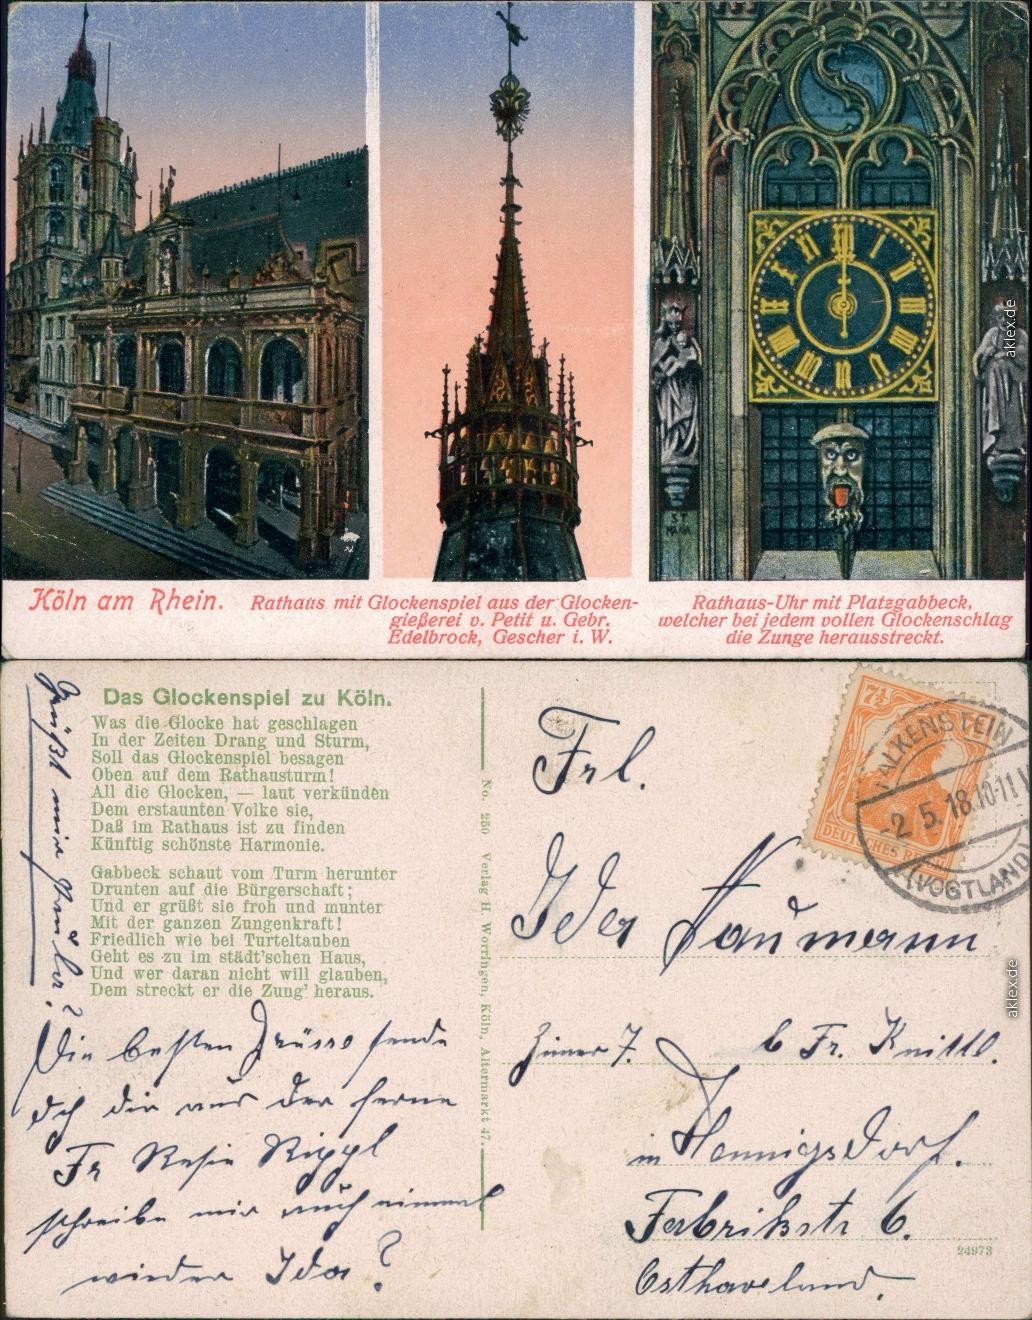 ST
MARIA
Köln am Rhein.
Rathaus mit Glockenspiel aus der Glocken-
gießerei v. Petit u. Gebr.
Edelbrock, Gescher i. W.
Rathaus-Uhr mit Platzgabbeck,
welcher bei jedem vollen Glockenschlag
die Zunge herausstreckt.
aklex.de
Das Glockenspiel zu Köln.
Was die Glocke hat geschlagen
In der Zeiten Drang und Sturm,
Soll das Glockenspiel besagen
Oben auf dem Rathausturm!
All die Glocken, — laut verkünden
Dem erstaunten Volke sie,
Daß im Rathaus ist zu finden
Künftig schönste Harmonie.
Gabbeck schaut vom Turm herunter
Drunten auf die Bürgerschaft;
Und er grüßt sie froh und munter
Mit der ganzen Zungenkraft!
Friedlich wie bei Turteltauben
Geht es zu im städt'schen Haus,
Und wer daran nicht will glauben,
Dem streckt er die Zung' heraus.
Grüßt mir
Die besten Grüsse sende
ich dir aus der ferne
Fr Resie Rippl
schreibe mir auch einmal
wieder Ida?
No. 250 Verlag H. Worringen, Köln, Altermarkt 47.
7½
DEUTSCHES REICH
FALKENSTEIN
-2.5.18.10-11V
(VOGTLAND)
Frl.
Ida Naumann
Zimer 7. b Fr. Knittl.
in Hennigsdorf.
Fabrikstr 6.
Osthaveland.
24973
aklex.de